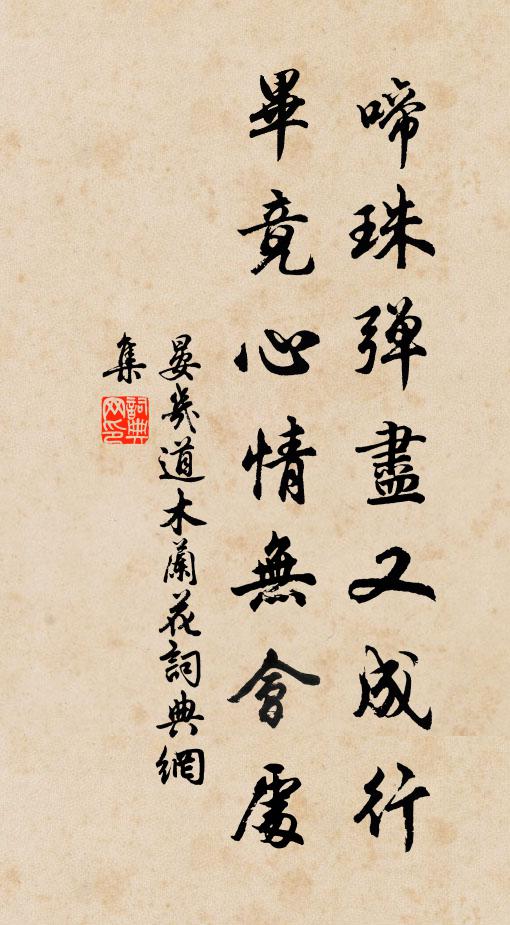 啼珠彈盡又成行
畢竟心情無會處
晏幾道木蘭花詞典網
集
詞典
网印